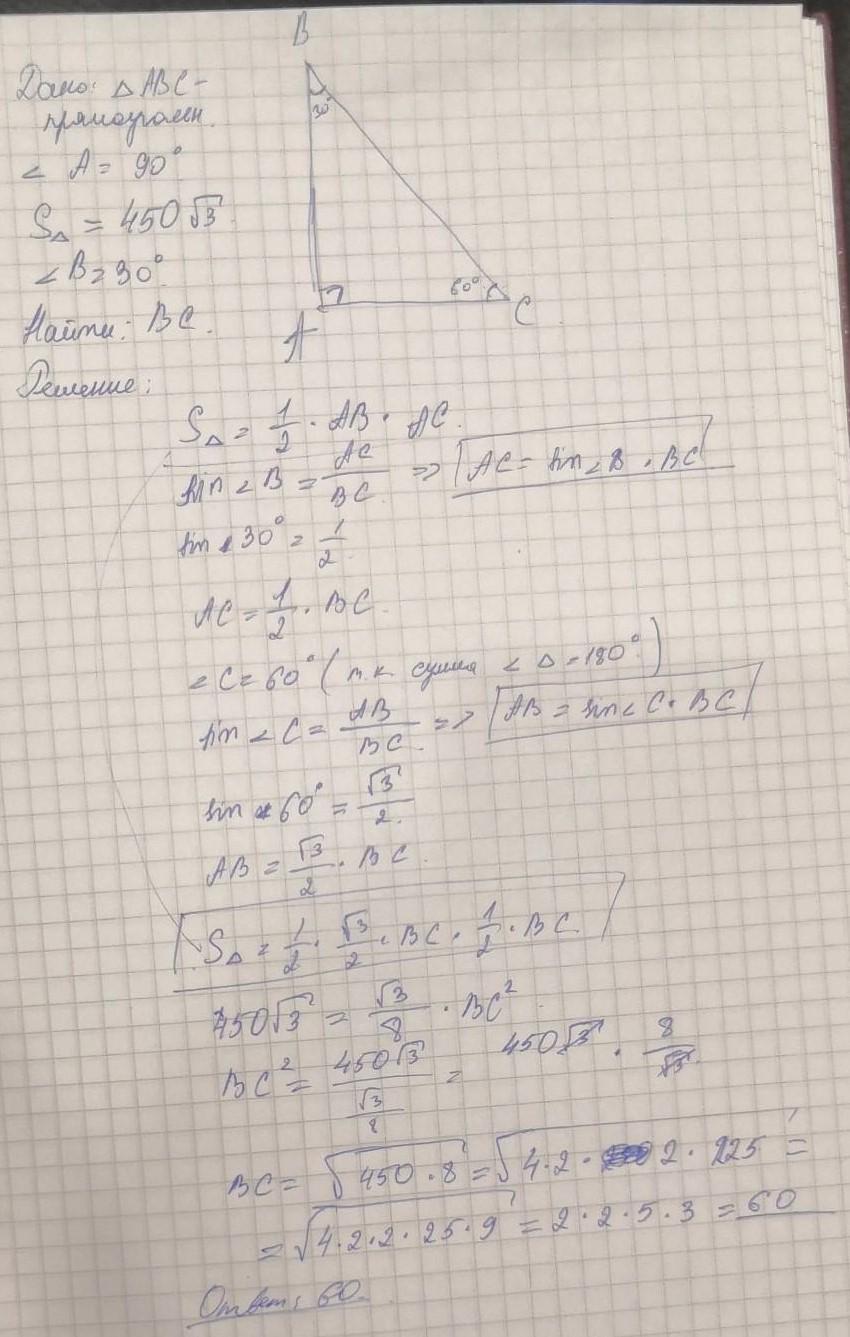 B
Дано: △ ABC -
прямоуголн.
30°
∠ A = 90°
S△ = 450√3
∠B = 30°
60° C
Найти: BC.
A
Решение:
S△ = 1/2 · AB · AC.
sin ∠ B = AC/BC => AC = sin ∠ B · BC
sin 30° = 1/2
AC = 1/2 · BC.
∠ C = 60° (т.к. сумма ∠ △ = 180°)
sin ∠ C = AB/BC => AB = sin ∠ C · BC
sin 60° = √3/2.
AB = √3/2 · BC.
S△ = 1/2 · √3/2 · BC · 1/2 · BC.
450√3 = √3/8 · BC²
BC² = 450√3/(√3/8) = 450√3 · 8/√3
BC = √450 · 8 = √4 · 2 · 2 · 225 =
= √4 · 2 · 2 · 25 · 9 = 2 · 2 · 5 · 3 = 60
Ответ: 60.